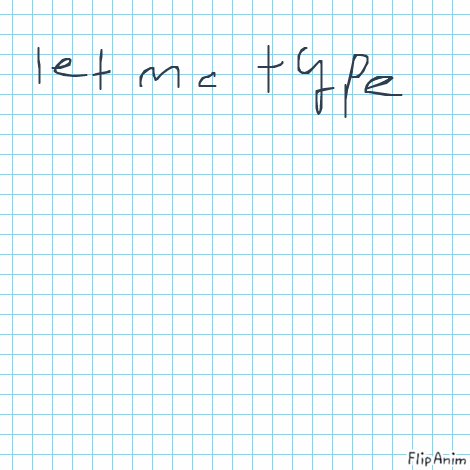 let me type
FlipAnim